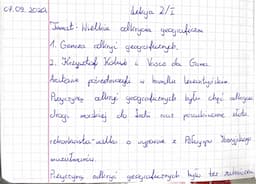 07.09.2020 Lekcja 2/I
Temat: Wielkie odkrycia geograficzne
1. Geneza odkryć geograficznych.
2. Krzysztof Kolumb i Vasco da Gama.
pośredniczyli w handlu lewantyńskim.
Przyczyną odkryć geograficznych była chęć odkrycia
drogi morskiej do Indii oraz poszukiwanie złota.
rekonkwista - walka o wyparcie z Półwyspu Iberyjskiego
muzułmanów.
Przyczyną odkryć geograficznych była też